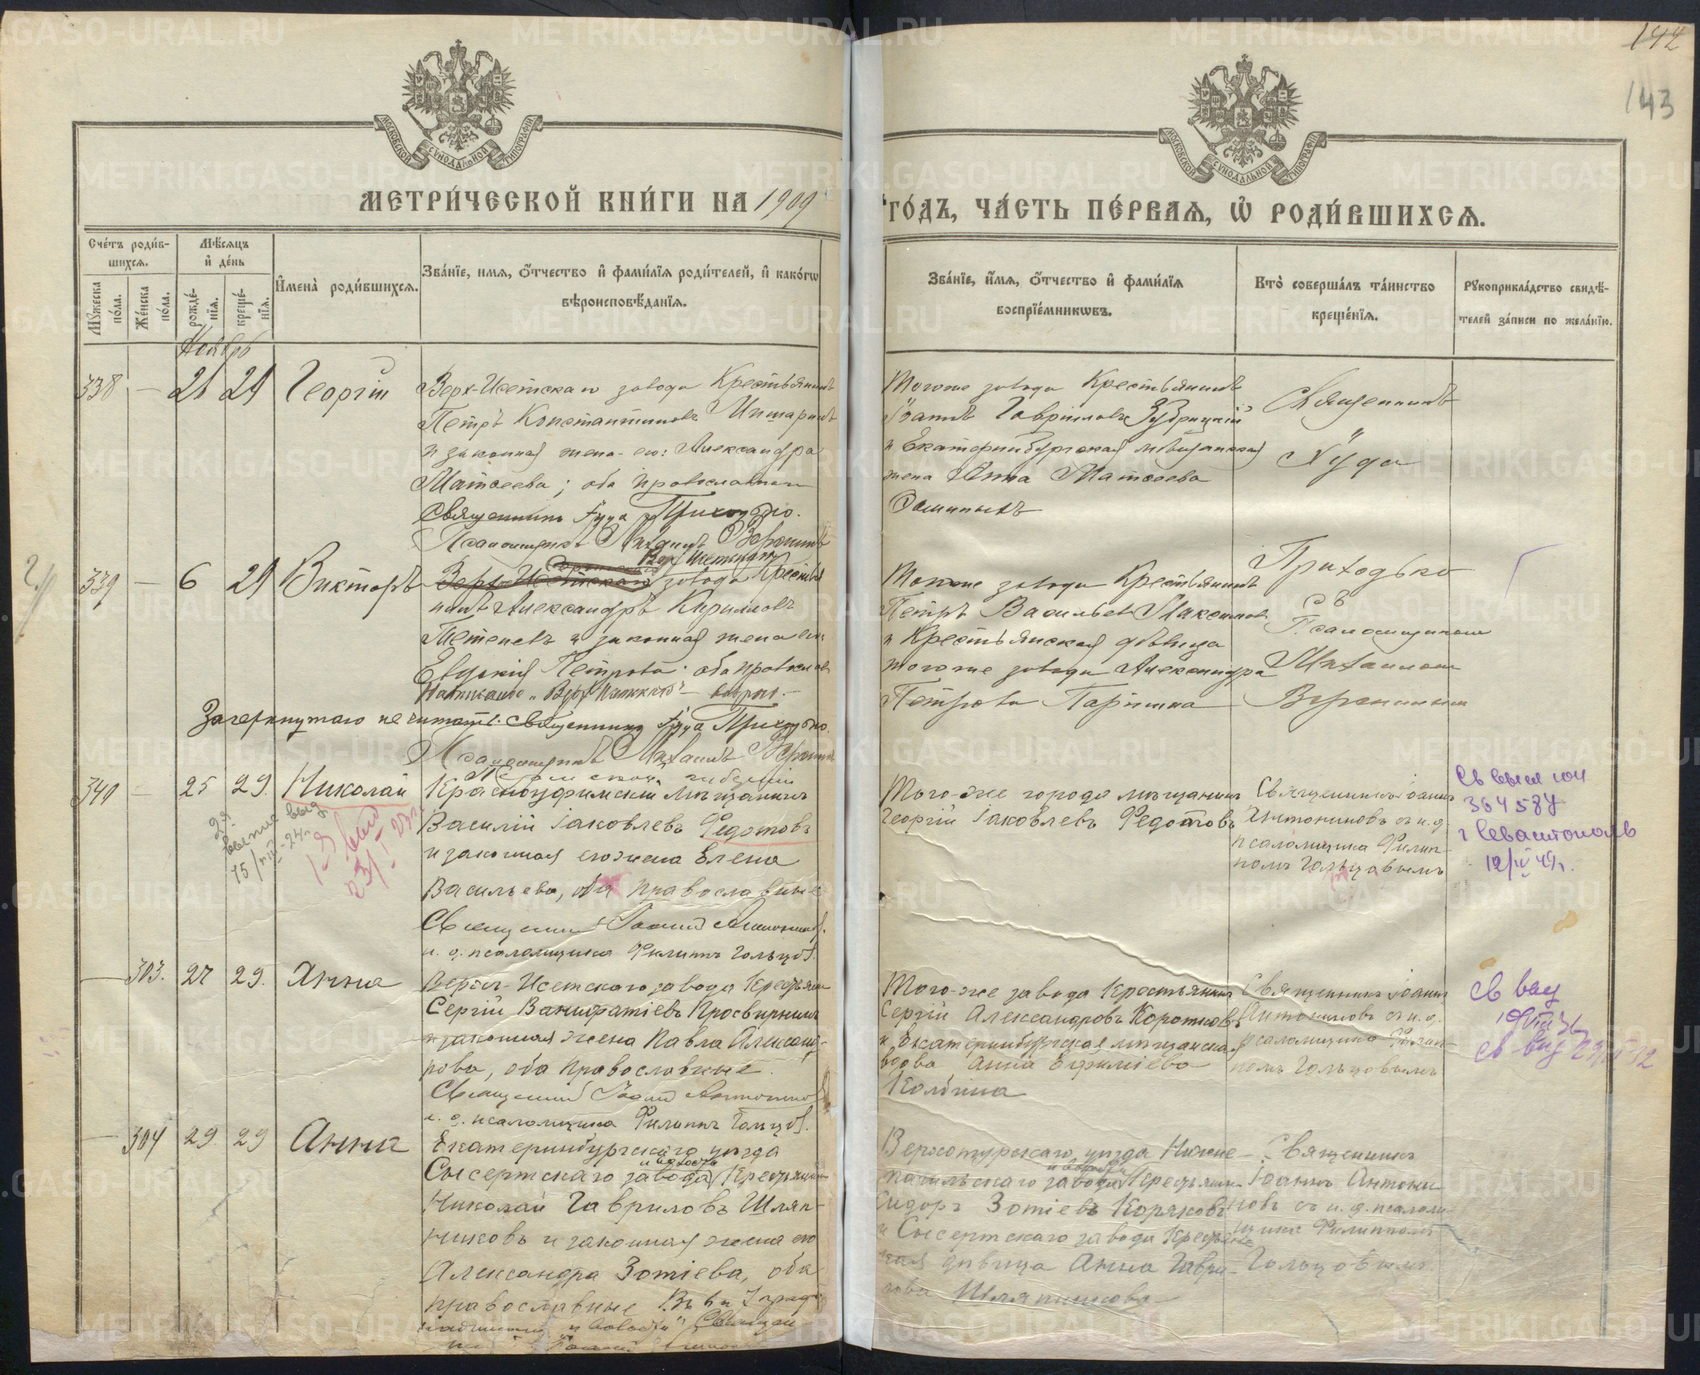 142
143
МЕТРИ́ЧЕСКОЙ КНИ́ГИ НА 1909
ГО́ДЪ, ЧА́СТЬ ПЕ́РВАЯ, Ѡ РОДИ́ВШИХСЯ.
Сче́тъ роди́в-
шихся.
Мѣ́сяцъ
и҆ де́нь
Мꙋ́жеска по́ла.
Же́нска по́ла.
рожде́-
нїя.
креще́-
нїя.
И҆мена̀ роди́вшихся.
Зва́нїе, имя, ѻ҆́тчество и҆ фами́лїя роди́телей, и҆ како́гѡ
вѣроисповѣ́данїя.
Зва́нїе, и҆́мя, ѻ҆́тчество и҆ фами́лїя
воспрїе́мникѡвъ.
Кто̀ соверша́лъ та́инство
креще́нїя.
Рꙋкоприкла́дство свидѣ́-
телей за́писи по жела́нїю.
Ноябрь
338 — 21 29 Георгій
Верх-Исетскаго завода Крестьянинъ
Петръ Константиновъ
и законная жена его: Александра
Матѳеева; оба православные
Священникъ Іуда Приходько.
Псаломщикъ Михаилъ
Тогоже завода Крестьянинъ
Іоаннъ Гавріиловъ Зубрицкій
и Екатеринбургская мѣщанская
жена Анна Матѳеева
Священникъ
Іуда
339 — 6 29 Викторъ
Верх-Исетскаго завода Крестья
нинъ Александръ Кириловъ
и законная жена его
Евдокія Петрова; оба православ
Написано „Верх-Исетскаго“ — вѣрно.
Зачеркнутаго не читать. Священникъ Іуда Приходько.
Псаломщикъ Михаилъ
Тогоже завода Крестьянинъ
Петръ Васильевъ Максимов
и Крестьянская дѣвица
тогоже завода Александра
Петрова Паршина
Приходько
съ
Псаломщикомъ
Михаиломъ
340 — 25 29. Николай
Пермской губерніи
Красноуфимскій мѣщанинъ
Василій Іаковлевъ Федотовъ
и законная его жена Елена
Васильева, оба православные
Священникъ Іоаннъ Антониновъ.
и. д. псаломщика Филиппъ Гольцов.
Того-же города мѣщанинъ
Георгій Іаковлевъ Федотовъ
Священникъ Іоаннъ
Антониновъ съ и. д.
псаломщика Филип-
помъ Гольцовымъ
Св выслан
364587
г Севастополь
12/V 49г.
— 303. 27 29. Анна
Верхъ-Исетскаго завода Крестьян
Сергій Вонифатіевъ Просвирнинъ
и законная жена Павла Александ-
рова, оба православные.
Священникъ Іоаннъ Антонинов
и. д. псаломщика Филиппъ Гольцов.
Того-же завода Крестьянин
Сергій Александровъ Коротковъ
и Екатеринбургская мѣщанская
вдова Анна Ефиміева
Колбина
Священникъ Іоаннъ
Антониновъ съ и. д.
псаломщика Филип-
помъ Гольцовымъ
св выд
св выд
— 304 29. 29 Анна
Екатеринбургскаго уѣзда
и волости
Сысертскаго завода Крестьянин
Николай Гавриловъ Шляп-
никовъ и законная жена его
Александра Зотіева, оба
православные
и волости" Священ
Верхотурскаго уѣзда Нижне-
и волости
тагильскаго завода Крестьянин
Сидоръ Зотіевъ Коряковъ
и Сысертскаго завода Крестьян
ская дѣвица Анна Гаври-
лова Шляпникова
Священникъ
Іоаннъ Антони
новъ съ и. д. псалом
щика Филиппомъ
Гольцовымъ